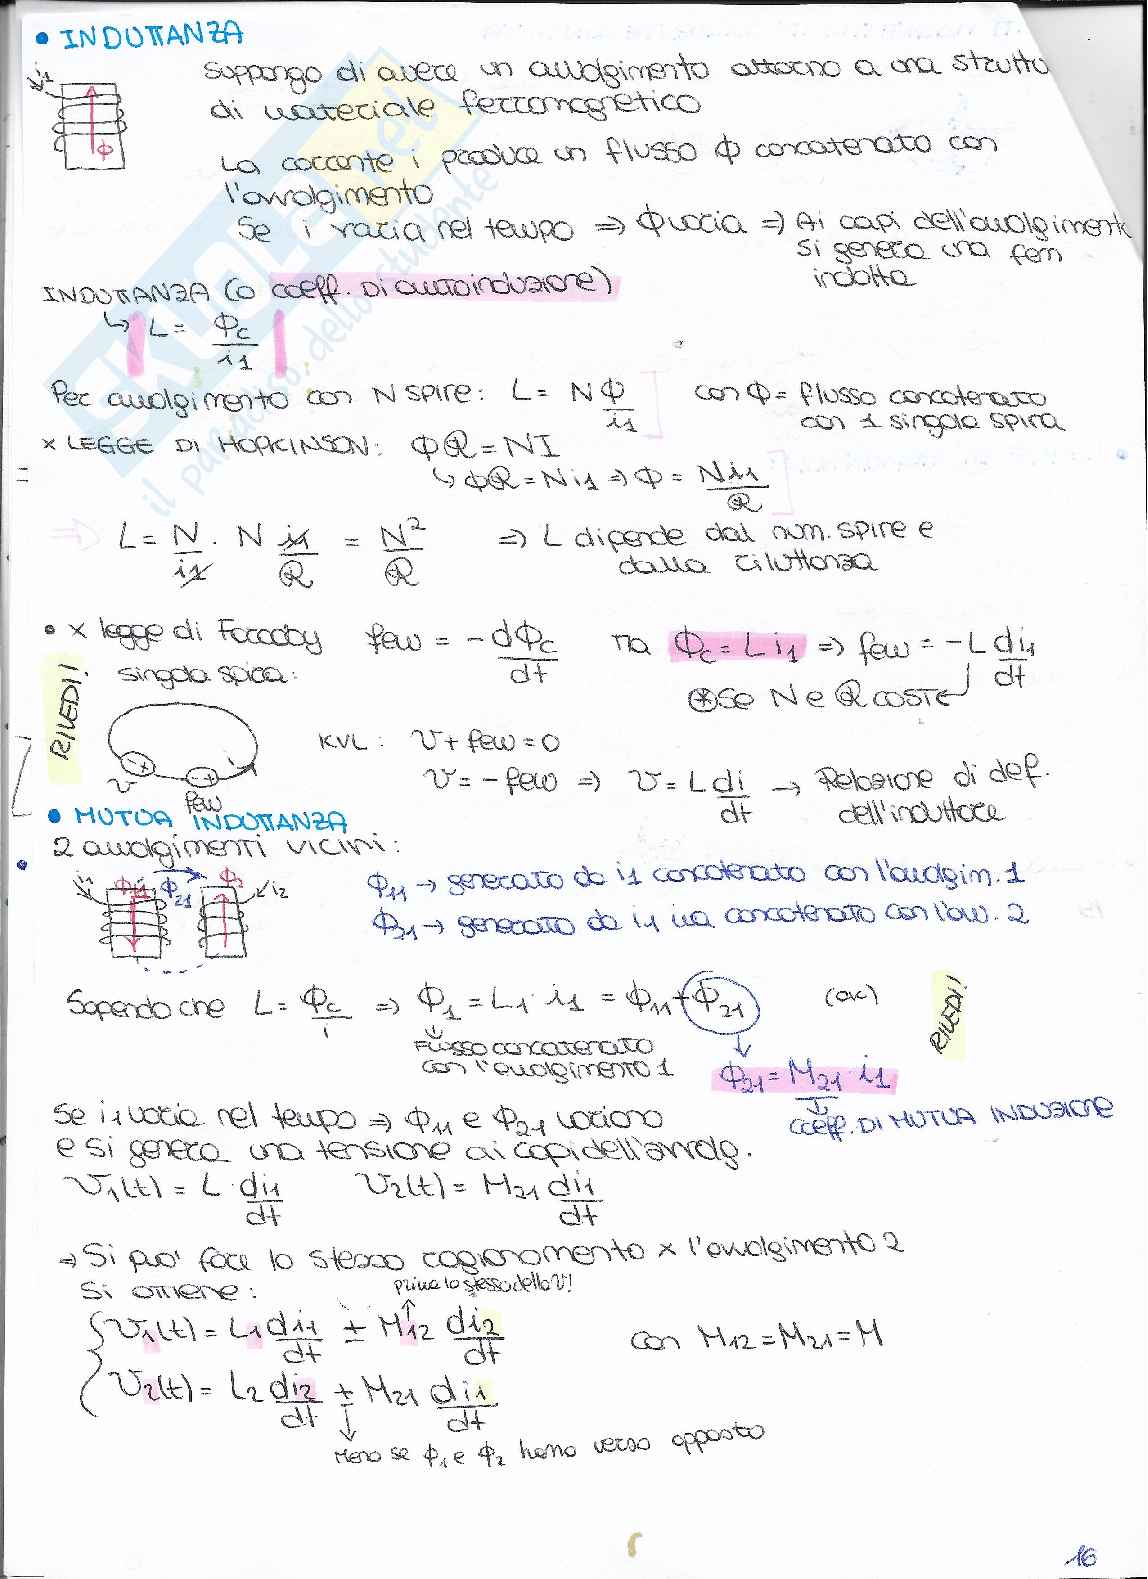 • INDUTTANZA
i1
Φ
Suppongo di avere un avvolgimento attorno a una strutt
di materiale ferromagnetico
La corrente i produce un flusso Φ concatenato con
l'avvolgimento
Se i varia nel tempo ⇒ Φ varia ⇒ Ai capi dell'avvolgiment
si genera una fem
indotta
INDUTTANZA (o coeff. DI autoinduzione)
↳ L = Φc / i1
Per avvolgimento con N SPIRE: L = N Φ / i1 con Φ = flusso concatenato
con 1 singola spira
x LEGGE DI HOPKINSON: ΦR = NI
↳ ΦR = N i1 ⇒ Φ = N i1 / R
⇒ L = N / i1 · N i1 / R = N² / R ⇒ L dipende dal num. spire e
dalla riluttanza
• x legge di Faraday fem = - dΦc / dt ma Φc = L i1 ⇒ fem = -L di1 / dt
singola spira:
⊛ Se N e R COSTE
RIVEDI!
v
fem
KVL: v + fem = 0
v = - fem ⇒ v = L di / dt → Relazione di def.
dell'induttore
• MUTUA INDUTTANZA
2 avvolgimenti vicini:
i1 Φ11 Φ21 Φ2 i2
Φ11 → generato da i1 concatenato con l'avvolgim. 1
Φ21 → generato da i1 ma concatenato con l'avv. 2
Sapendo che L = Φc / i ⇒ Φ1 = L1 · i1 = Φ11 + Φ21
RIVEDI!
Flusso concatenato
con l'avvolgimento 1
Φ21 = M21 · i1
coeff. DI MUTUA INDUZIONE
Se i1 varia nel tempo ⇒ Φ11 e Φ21 variano
e si genera una tensione ai capi dell'avvolg.
v1(t) = L di1 / dt v2(t) = M21 di1 / dt
⇒ Si può fare lo stesso ragionamento x l'avvolgimento 2
Si ottiene:
prima lo stesso della V!
v1(t) = L1 di1 / dt ± M12 di2 / dt con M12 = M21 = M
v2(t) = L2 di2 / dt ± M21 di1 / dt
Meno se Φ1 e Φ2 hanno verso opposto
16
SKUOLA.net
il paradiso dello studente